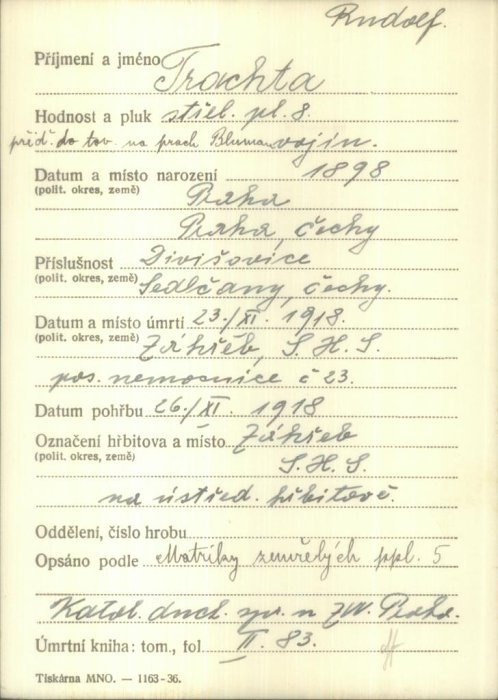 Rudolf.
Příjmení a jméno Trachta
Hodnost a pluk střel. pl. 8.
příd. do tov. na prach Bluman vojín.
Datum a místo narození 1898
(polit. okres, země) Praha
Praha, Čechy
Příslušnost Divišovice
(polit. okres, země) Sedlčany, Čechy.
Datum a místo úmrtí 23./XI. 1918.
(polit. okres, země) Záhřeb, S. H. S.
pos. nemocnice č 23.
Datum pohřbu 26./XI. 1918
Označení hřbitova a místo Záhřeb
(polit. okres, země) S. H. S.
na ústřed. hřbitově.
Oddělení, číslo hrobu
Opsáno podle Matriky zemřelých ppl. 5
Katol. duch. spr. n ZVV. Praha.
Úmrtní kniha: tom., fol II. 83.
Tiskárna MNO. — 1163-36.